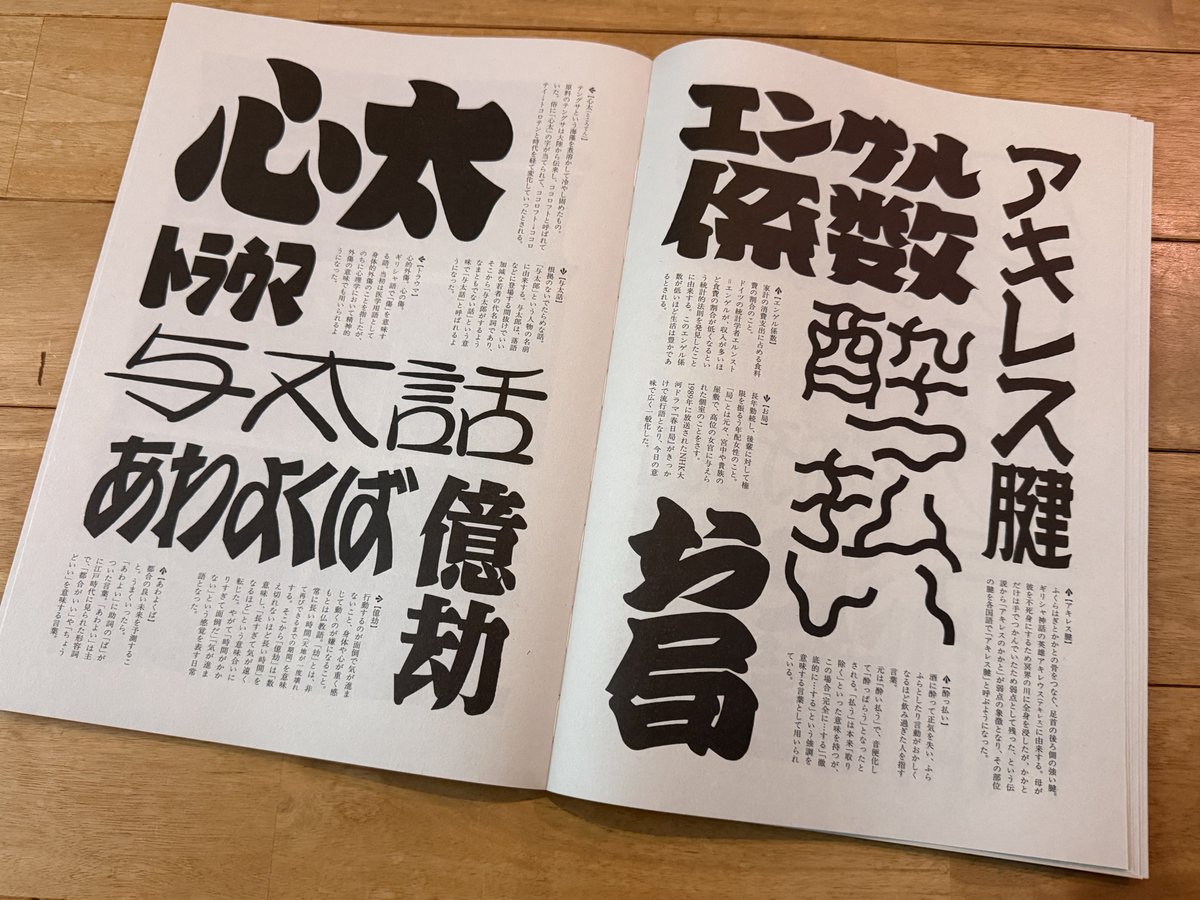 アキレス腱
【アキレス腱】
ふくらはぎとかかとの骨をつなぐ、足首の後ろ側の強い腱。
ギリシャ神話の英雄アキレウス(アキレス)に由来する。母が
彼を不死身にするため冥界の川に全身を浸したが、かかと
だけは手でつかんでいたため弱点として残った、という伝
説から「アキレスのかかと」が弱点の象徴となり、その部位
の腱を各国語で「アキレス腱」と呼ぶようになった。
酔っ払い
【酔っ払い】
酒に酔って正気を失い、ふら
ふらとしたり言動がおかしく
なるほど飲み過ぎた人を指す
言葉。
元は「酔い払う」で、音便化し
て「酔っぱらう」となったと
される。「払う」は本来「取り
除く」といった意味を持つが、
この場合「完全に…する」「徹
底的に…する」という強調を
意味する言葉として用いられ
ている。
エンゲル
係数
【エンゲル係数】
家計の消費支出に占める食料
費の割合のこと。
ドイツの統計学者エルンスト
=エンゲルが、収入が多いほ
ど食費の割合が低くなるとい
う統計的法則を発見したこと
に由来する。このエンゲル係
数が低いほど生活は豊かであ
るとされる。
【お局】
長年勤続し、後輩に対して権
限を振るう年配女性のこと。
「局」とは元々、宮中や貴族の
屋敷で、高位の女官に与えら
れた個室のことをさす。
1989年に放送されたNHK大
河ドラマ『春日局』がきっか
けで流行語となり、今日の意
味で広く一般化した。
お局
心太
【心太(ところてん)】
テングサという海藻を煮溶かして冷やし固めたもの。
原料のテングサは大陸から伝来し、ココロフトと呼ばれて
いた。俗に「心太」の字が当てられて、ココロフト→ココロ
テイ→トコロテンと時代を経て変化していったとされる。
トラウマ
【トラウマ】
心的外傷。心の傷。
ギリシャ語で、「傷」を意味す
る語。当初は医学用語として
身体的外傷のことを指したが、
のちに心理学において精神的
外傷の意味でも用いられるよ
うになった。
【与太話】
根拠のないでたらめな話。
「与太郎」という人物の名前
に由来する。与太郎は、落語
などに登場する間抜けでいい
加減な若者の代名詞であり、
そこから「与太郎がするよう
なまともでない話」という意
味で「与太話」と呼ばれるよ
うになった。
与太話
あわよくば
【あわよくば】
都合の良い未来を予測するこ
と。うまくいったら。
「あわよい」に助詞の「ば」が
ついた言葉。「あわよい」は主
に江戸時代に見られた形容詞
で、「都合がいい」や「ちょう
どいい」を意味する言葉。
億劫
【億劫】
行動するのが面倒で気が進ま
ないこと。身体や心が重く感
じて動くのが嫌になること。
もとは仏教語。「劫」とは、非
常に長い時間(天地が一度壊れ
て再びできるまでの期間)を意味
する。そこから「億劫」は「数
え切れないほど長い時間」を
意味し、「長すぎて気が遠く
なるほど」という意味合いに
転じた。やがて、「時間がかか
りすぎて面倒だ」「気が進ま
ない」という感覚を表す日常
語となった。